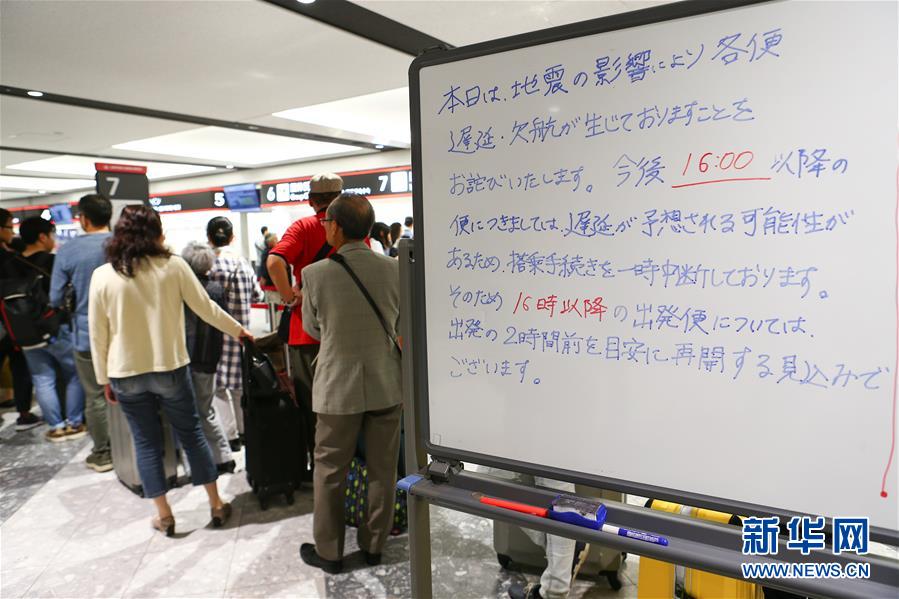 本日は、地震の影響により各便
遅延・欠航が生じておりますことを
お詫びいたします。今後 16:00 以降の
便につきましては、遅延が予想される可能性が
あるため、搭乗手続きを一時中断しております。
そのため 16時以降の出発便については、
出発の2時間前を目安に再開する見込みで
ございます。
7
5
6
7
新华网
WWW.NEWS.CN